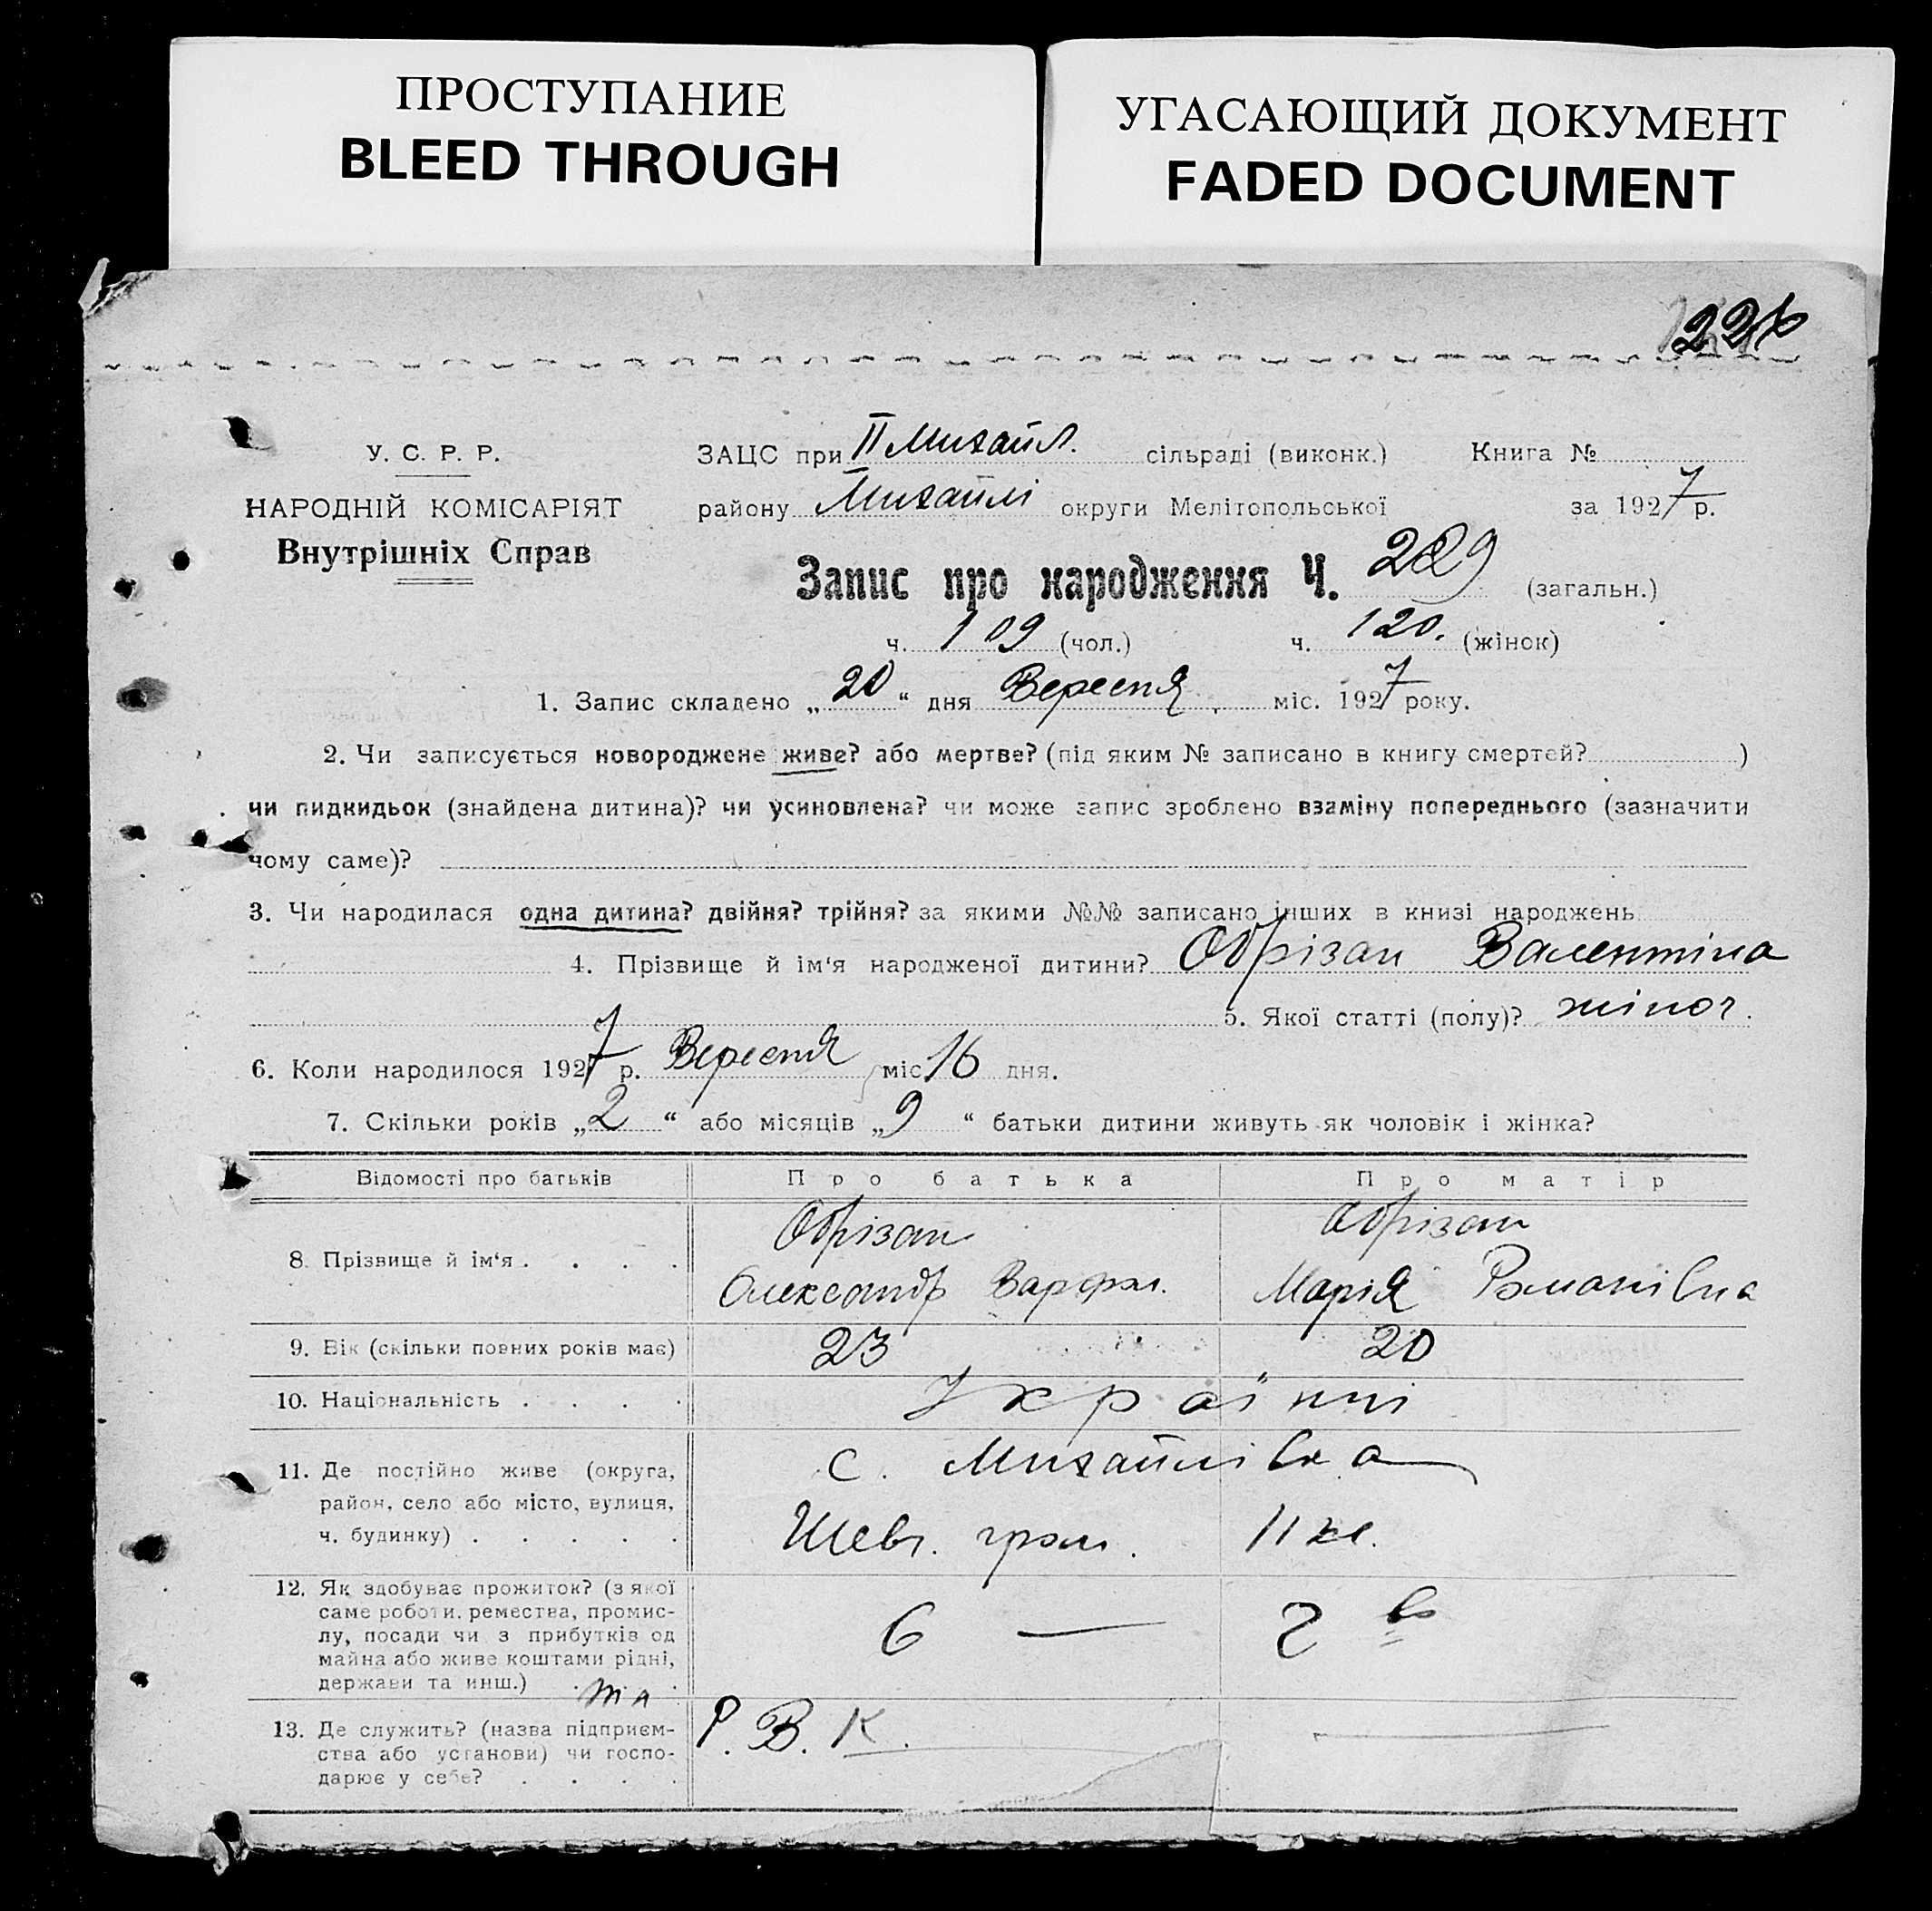 ПРОСТУПАНИЕ
BLEED THROUGH
УГАСАЮЩИЙ ДОКУМЕНТ
FADED DOCUMENT
226
У. С. Р. Р.
ЗАЦС при ІІ Михайл. сільраді (виконк.) Книга №
НАРОДНІЙ КОМІСАРІЯТ
району Михайлі округи Мелітопольської за 1927 р.
Внутрішніх Справ
Запис про народження Ч. 229 (загальн.)
ч. 109 (чол.) ч. 120. (жінок)
1. Запис складено „20“ дня Вересня міс. 1927 року.
2. Чи записується новороджене живе? або мертве? (під яким № записано в книгу смертей? )
чи пидкидьок (знайдена дитина)? чи усиновлена? чи може запис зроблено взаміну попереднього (зазначити
чому саме)?
3. Чи народилася одна дитина? двійня? трійня? за якими №№ записано інших в книзі народжень
4. Прізвище й ім‘я народженої дитини? Обрізан Валентіна
5. Якої статті (полу)? жіноч.
6. Коли народилося 1927 р. Вересня міс. 16 дня.
7. Скільки років „2“ або місяців „9“ батьки дитини живуть як чоловік і жінка?
Відомості про батьків Про батька Про матір
8. Прізвище й ім‘я . . . . Обрізан Олександр Варфол. Обрізан Марія Романівна
9. Вік (скільки повних років має) 23 20
10. Національність . . . . Україпці
11. Де постійно живе (округа,
район, село або місто, вулиця,
ч. будинку) . . . . .
с. Михайлівка
Шевч. гром. 11 кв.
12. Як здобуває прожиток? (з якої
саме роботи, ремества, промис-
лу, посади чи з прибутків од
майна або живе коштами рідні,
держави та инш.)
6 — 2
13. Де служить? (назва підприєм-
ства або установи) чи госпо-
дарює у себе? . . . .
Р. В. К. —